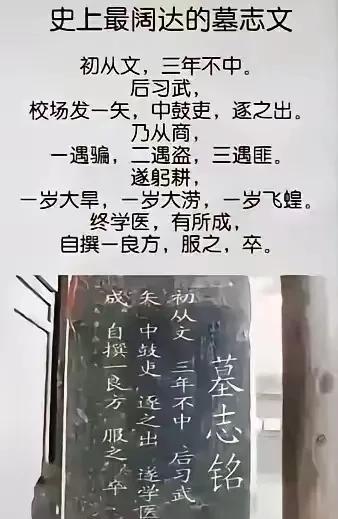 史上最阔达的墓志文
初从文，三年不中。
后习武，
校场发一矢，中鼓吏，逐之出。
乃从商，
一遇骗，二遇盗，三遇匪。
遂躬耕，
一岁大旱，一岁大涝，一岁飞蝗。
终学医，有所成，
自撰一良方，服之，卒。
墓志铭
初从文 三年不中 后习武
矢 中鼓吏 逐之出 遂学医
成 自撰一良方 服之 卒